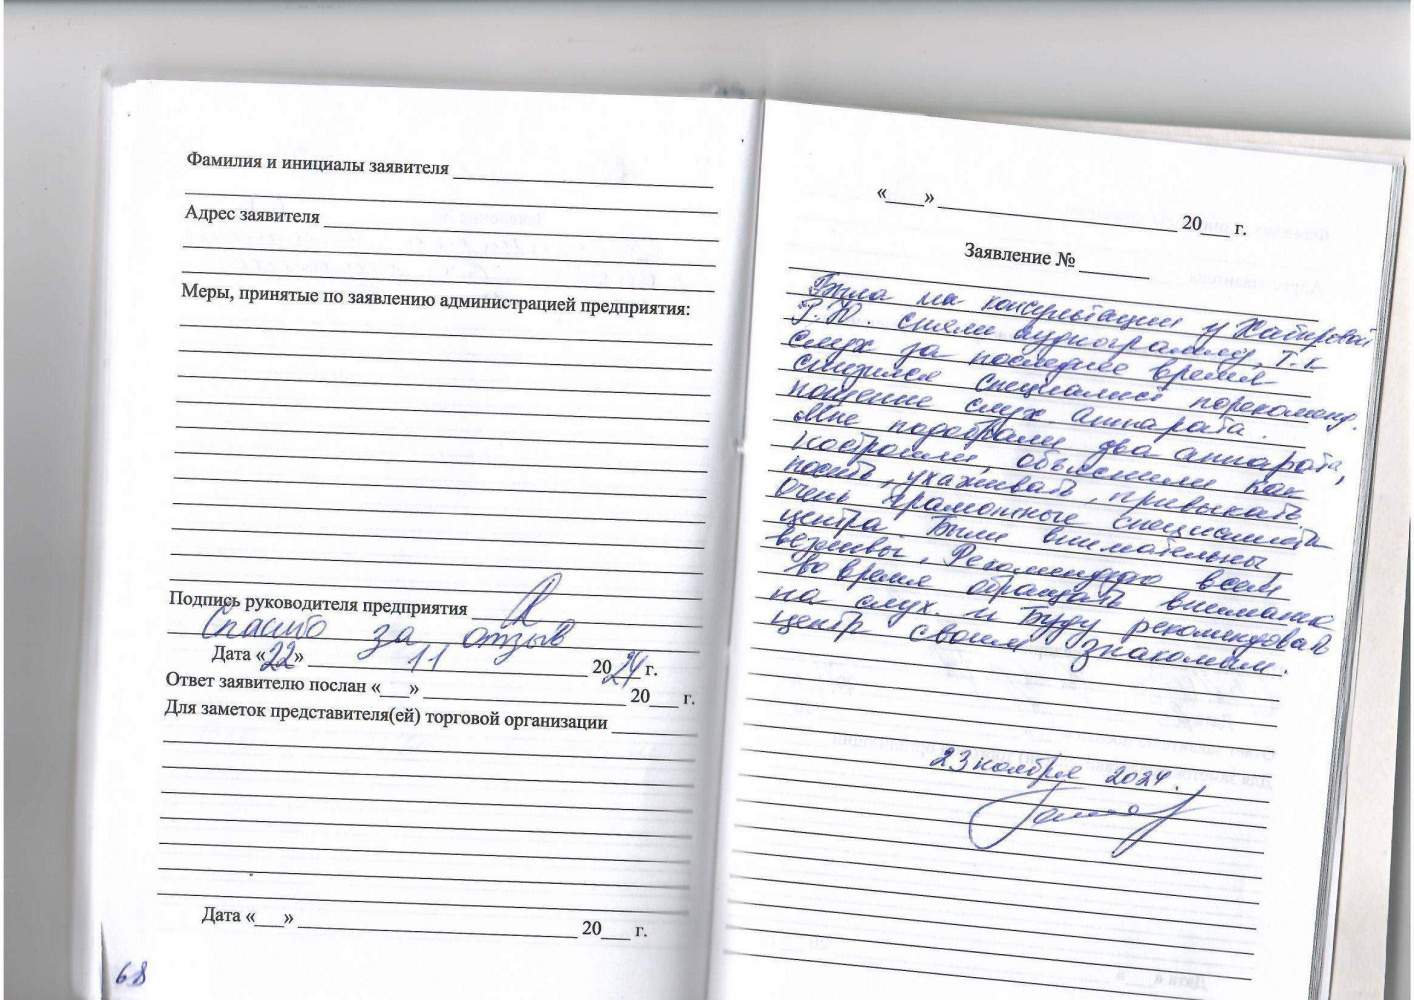 Фамилия и инициалы заявителя
Адрес заявителя
Меры, принятые по заявлению администрацией предприятия:
Подпись руководителя предприятия
Спасибо за отзыв
Дата «22» 11 2024 г.
Ответ заявителю послан «___» 20___ г.
Для заметок представителя(ей) торговой организации
Дата «___» 20___ г.
68
«___» 20___ г.
Заявление №
Была на консультации у Хатировой
Р.Ю. сняли аудиограмму, т.к
слух за последнее время
снизился специалист порекоменд.
ношение слух. аппарата.
Мне подобрали два аппарата,
настроили, объяснили как
носить, ухаживать, привыкать.
Очень грамотные специалисты
центра были внимательны,
вежливы. Рекомендую всем
во время обращать внимание
на слух. и Буду рекомендовать
центр своим знакомым.
23 ноября 2024.